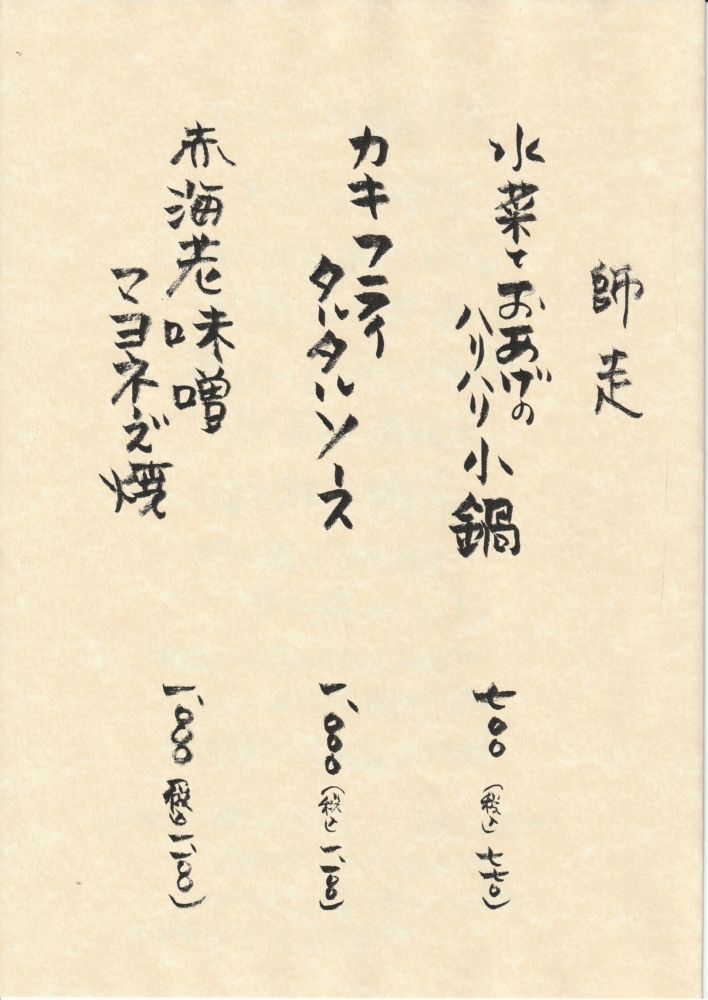 師走
水菜とおあげの
ハリハリ小鍋
七〇〇
(税込七七〇)
カキフライ
タルタルソース
一、〇〇〇
(税込一、一〇〇)
赤海老味噌
マヨネーズ焼
一、〇〇〇
(税込一、一〇〇)